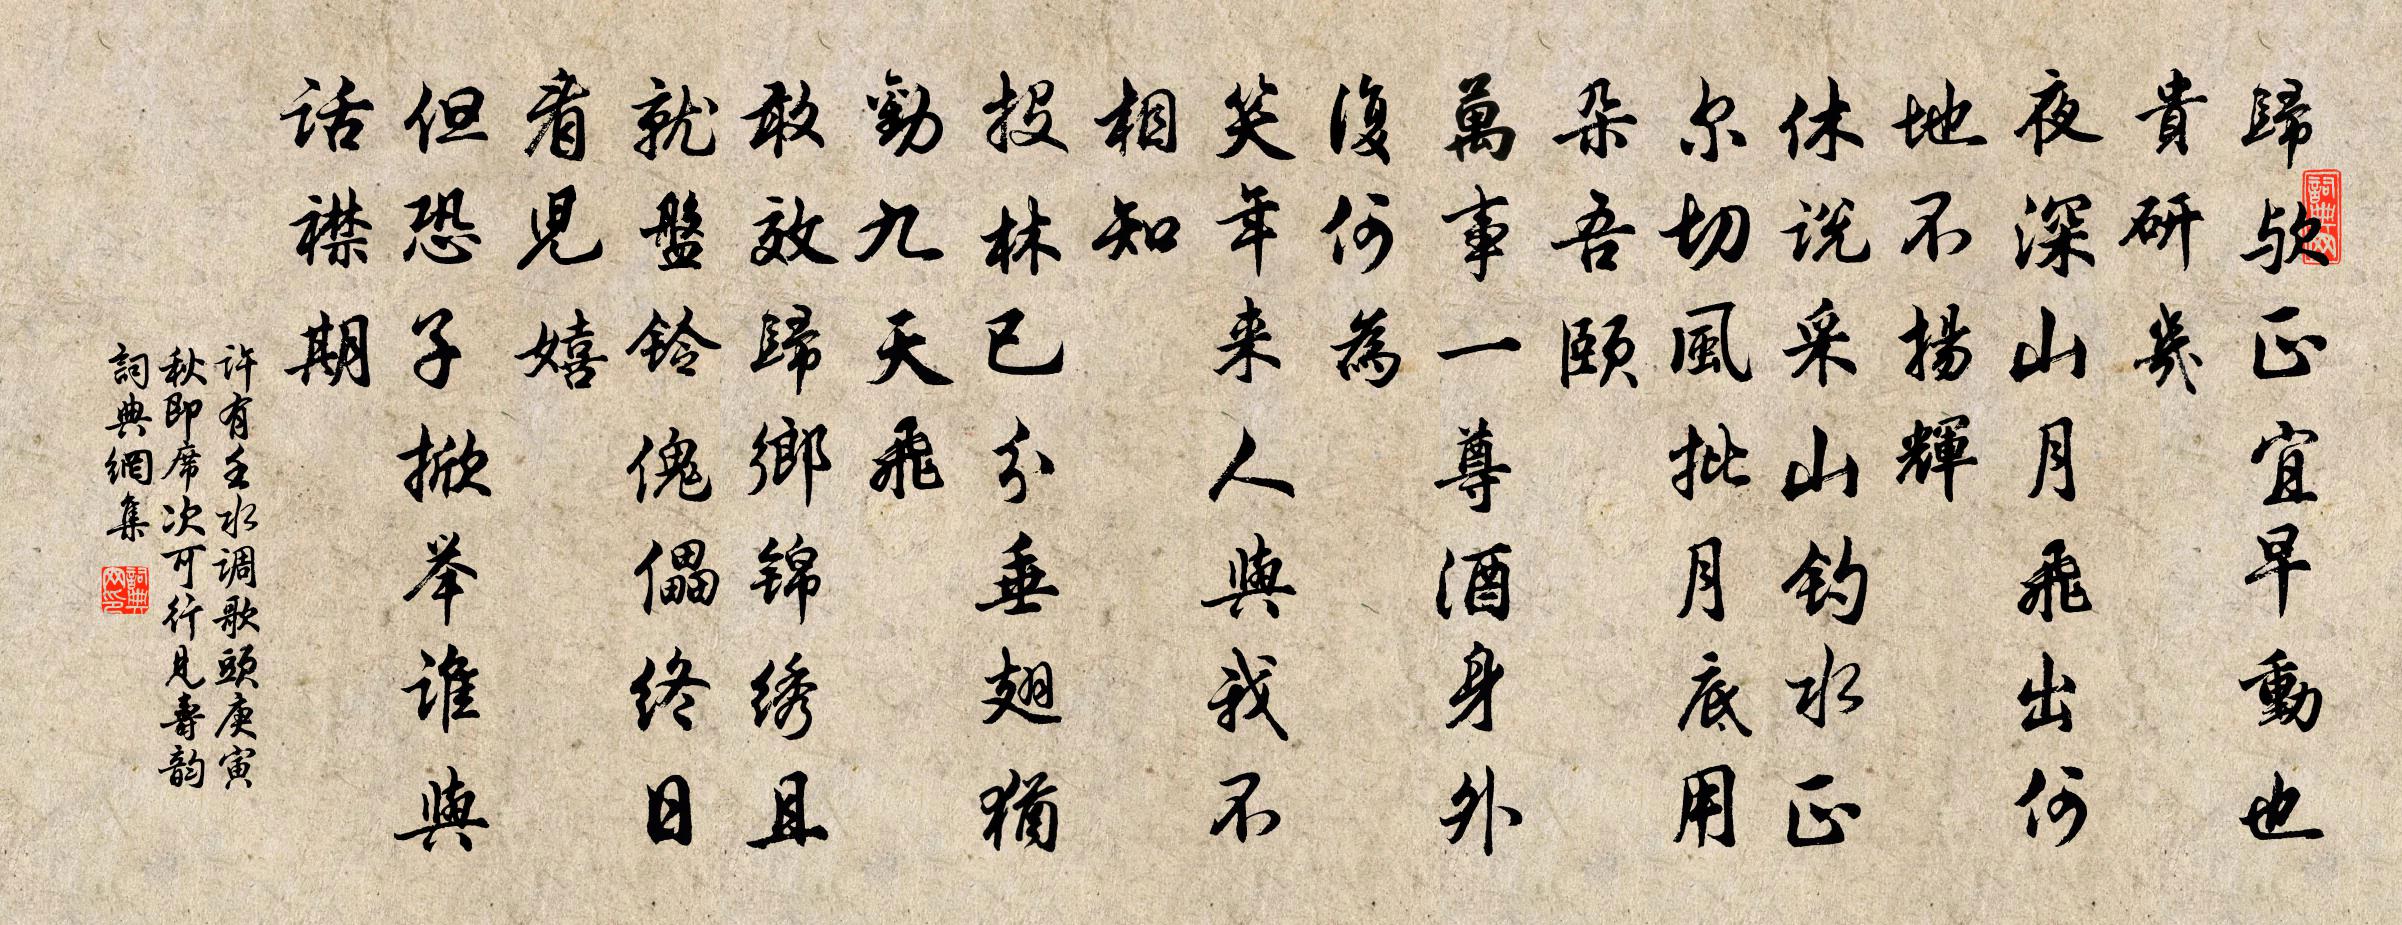 歸欤正宜早動也
貴研幾
夜深山月飛出何
地不揚輝
休说采山钓水正
尔切風批月底用
朵吾颐
萬事一尊酒身外
復何為
笑年来人與我不
相知
投林已分垂翅猶
勸九天飛
敢效歸鄉锦绣且
就盤铃傀儡终日
看兒嬉
但恐子掀举谁與
话襟期
许有壬水调歌頭庚寅
秋即席次可行見壽韵
詞典網集